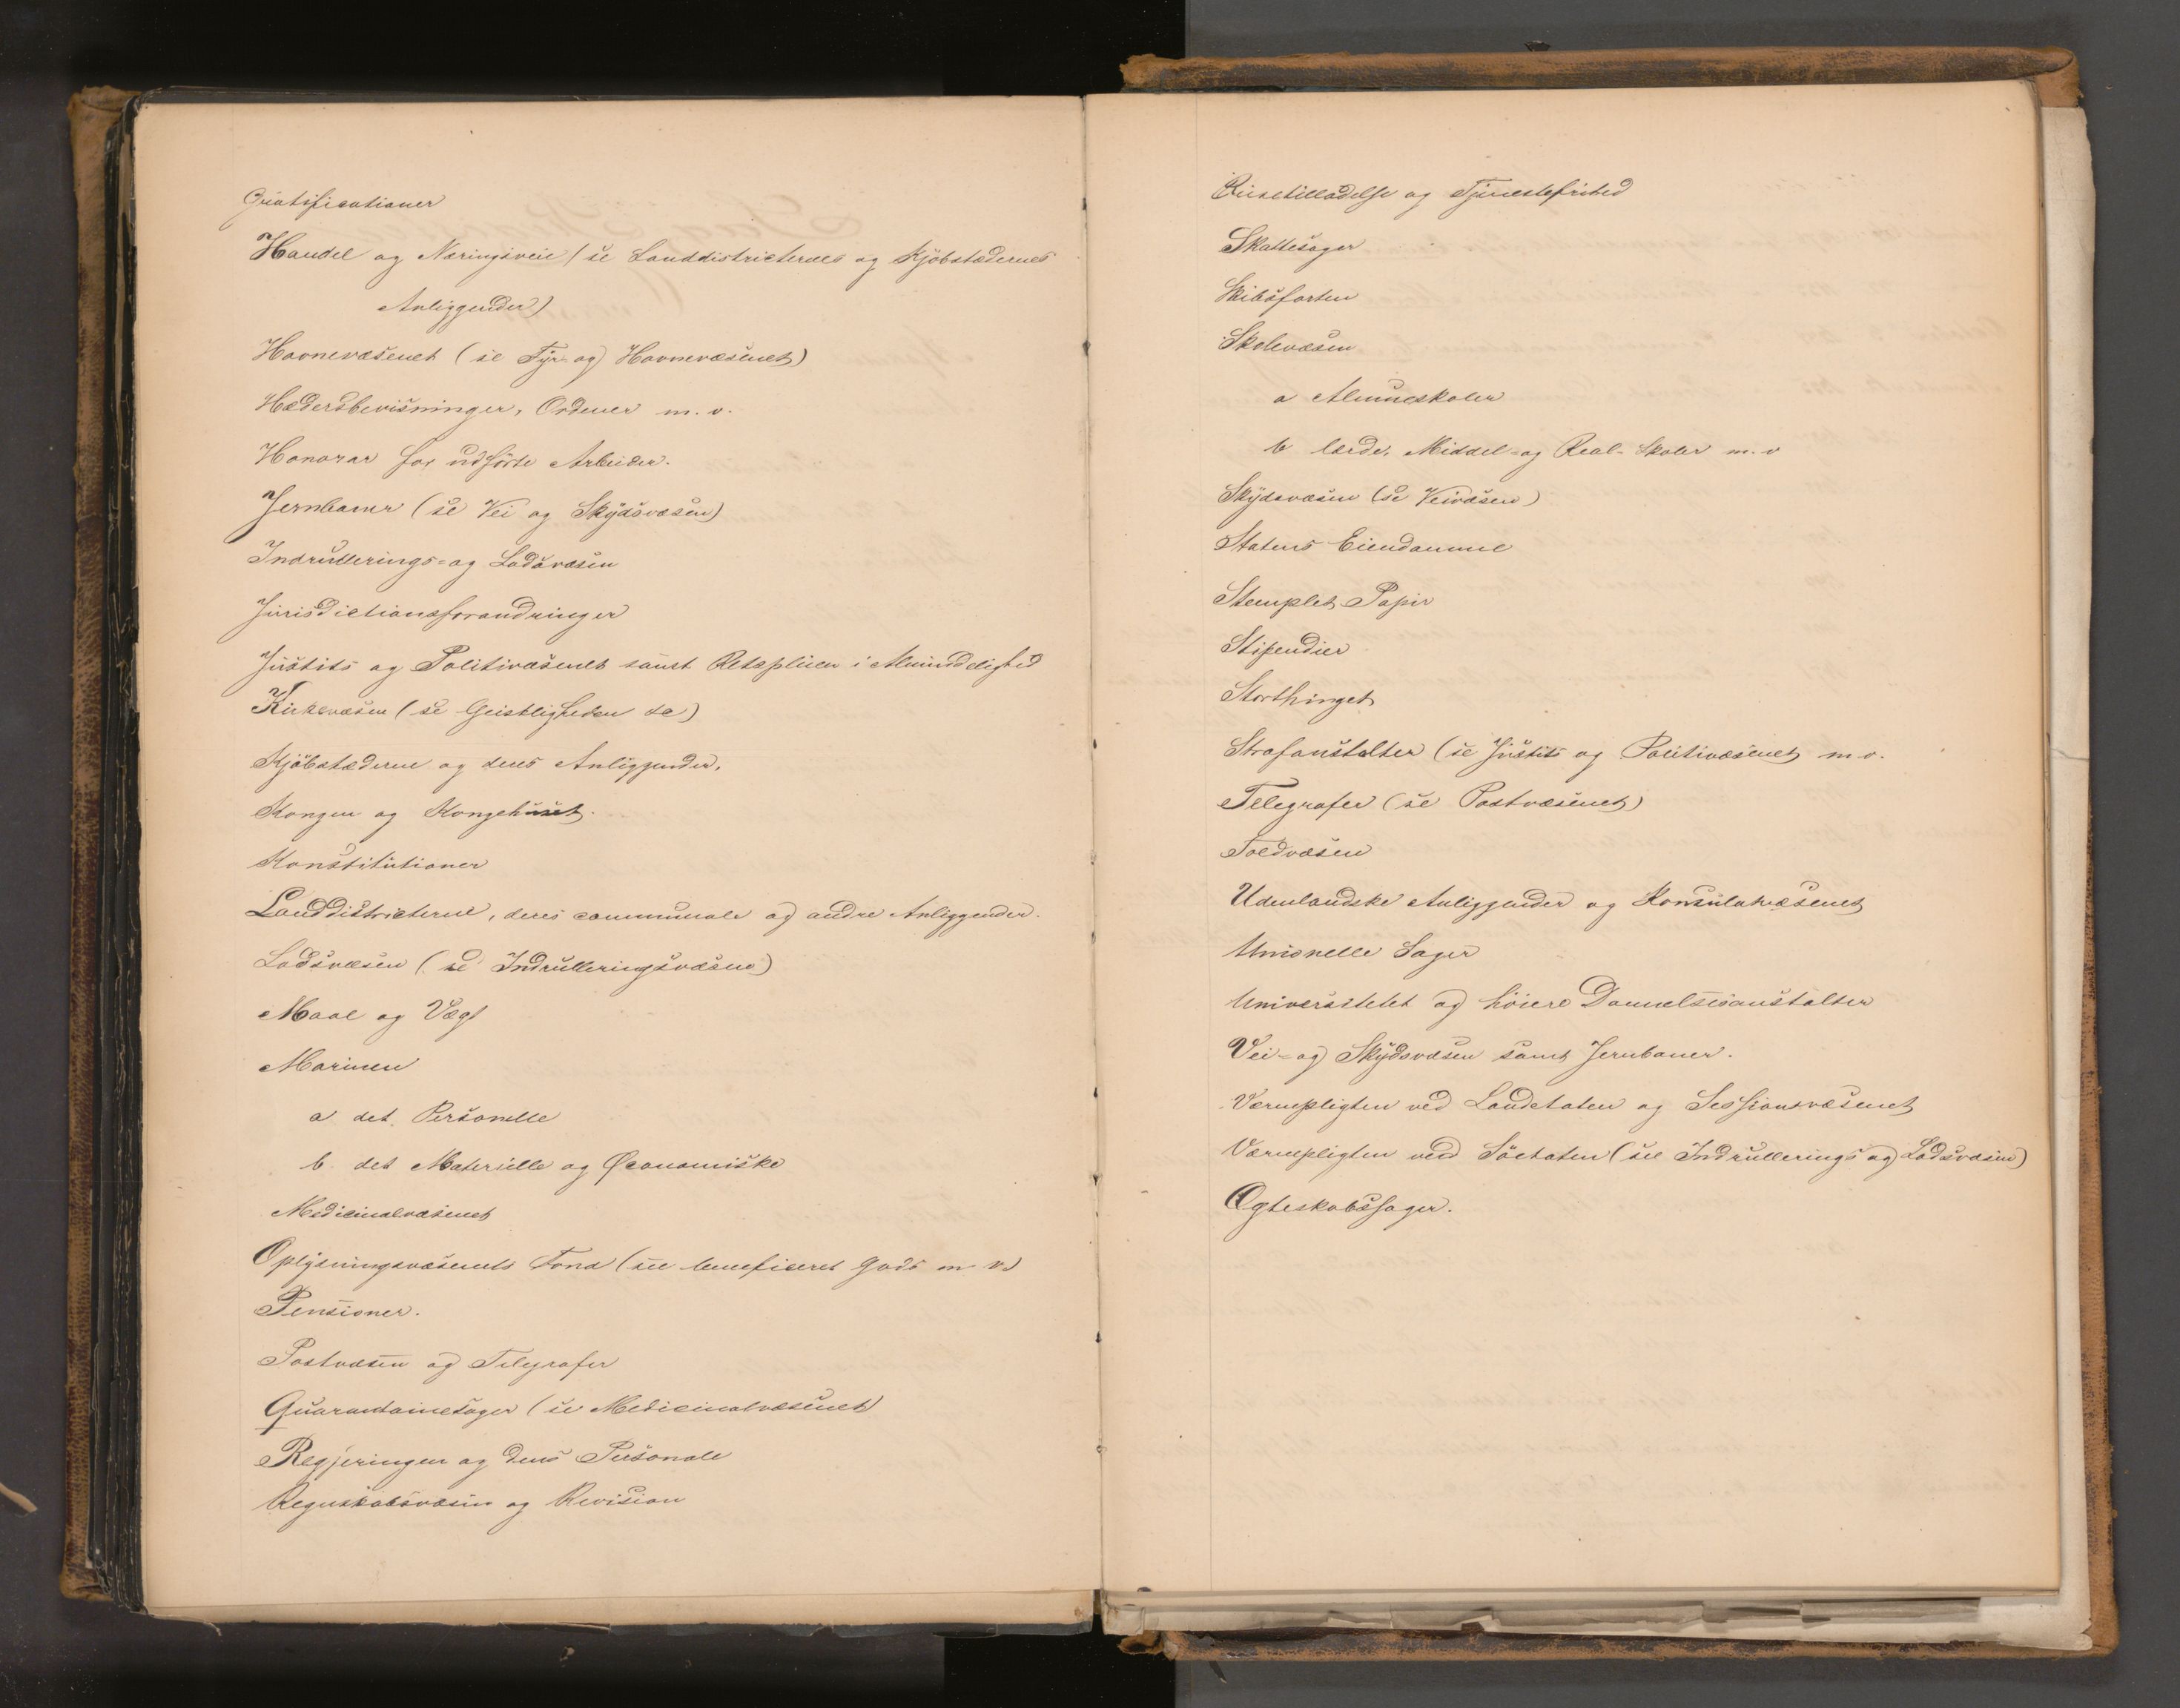 Gratificationer
Handel og Næringsveie (se Landdistricternes og Kjöbstædernes
Anliggender)
Havnevæsenet (se Fyr- og Havnevæsenet)
Hædersbevisninger, Ordener m. v.
Honorar for udförte Arbeider.
Jernbaner (se Vei og Skydsvæsen)
Indrullerings- og Lodsvæsen
Jurisdictionsforandringer
Justits og Politivæsenet samt Retspleien i Almindelighed
Kirkevæsen (se Geistligheden do)
Kjöbstæderne og deres Anliggender.
Kongen og Kongehuset.
Konstitutioner
Landdistricterne, deres communale og andre Anliggender.
Lodsvæsen (se Indrulleringsvæsen)
Maal og Vægt
Marinen
a det Personelle
b. det Materielle og Œconomiske
Medicinalvæsenet
Oplysningsvæsenets Fond (see beneficeret Gods m v.)
Pensioner.
Postvæsen og Telegrafer
Quarantainesager (se Medicinalvæsenet)
Regjeringen og dens Personale
Regnskabsvæsen og Revision
Reisetilladelse og Tjenestefrihed
Skattesager
Skibsfarten
Skolevæsen
a Almueskoler
b lærde, Middel- og Real- Skoler m. v
Skydsvæsen (se Veivæsen)
Statens Eiendomme
Stemplet Papir
Stipendier
Storthinget
Strafanstalter (se Justits og Politivæsenet m v.
Telegrafer (se Postvæsenet)
Toldvæsen
Udenlandske Anliggender og Konsulatvæsenet
Unionelle Sager
Universitetet og höiere Dannelsesanstalter
Vei- og Skydsvæsen samt Jernbaner.
Værnepligten ved Landetaten og Sessionsvæsenet
Værnepligten ved Söetaten (see Indrullerings og Lodsvæsen)
Ægteskabssager.